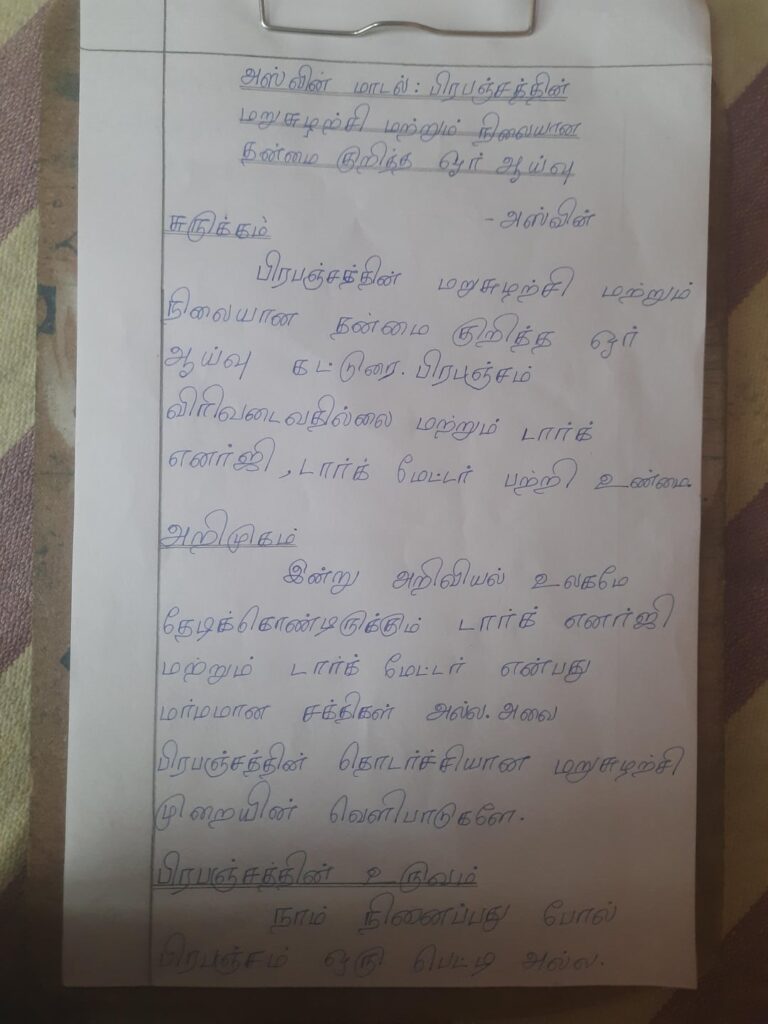 அஸ்வின் மாடல் : பிரபஞ்சத்தின்
மறுசுழற்சி மற்றும் நிலையான
தன்மை குறித்த ஓர் ஆய்வு
- அஸ்வின்
சுருக்கம்
பிரபஞ்சத்தின் மறுசுழற்சி மற்றும்
நிலையான தன்மை குறித்த ஓர்
ஆய்வு கட்டுரை. பிரபஞ்சம்
விரிவடைவதில்லை மற்றும் டார்க்
எனர்ஜி , டார்க் மேட்டர் பற்றி உண்மை.
அறிமுகம்
இன்று அறிவியல் உலகமே
தேடிக்கொண்டிருக்கும் டார்க் எனர்ஜி
மற்றும் டார்க் மேட்டர் என்பது
மர்மமான சக்திகள் அல்ல. அவை
பிரபஞ்சத்தின் தொடர்ச்சியான மறுசுழற்சி
முறையின் வெளிபாடுகளே.
பிரபஞ்சத்தின் உருவம்
நாம் நினைப்பது போல்
பிரபஞ்சம் ஒரு பெட்டி அல்ல.